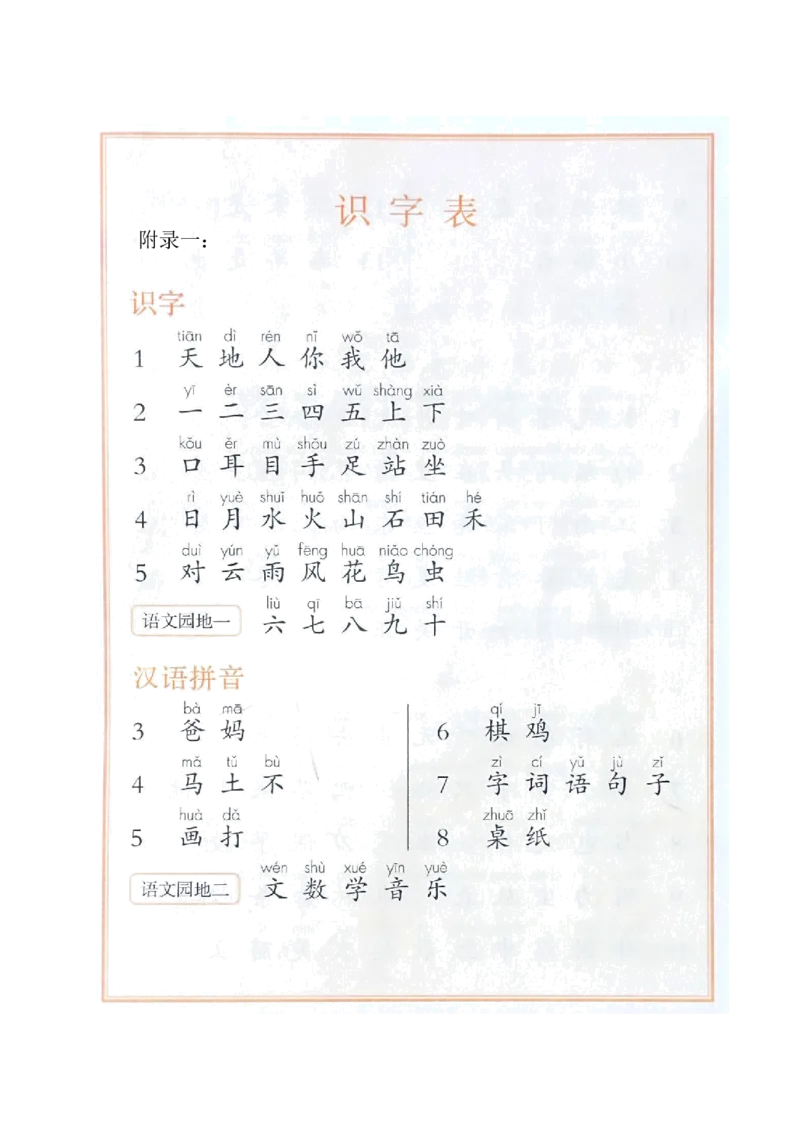 识字表
附录一：
识字
tiān dì rén nǐ wǒ tā
1 天 地 人 你 我 他
yī èr sān sì wǔ shàng xià
2 一 二 三 四 五 上 下
kǒu ěr mù shǒu zú zhàn zuò
3 口 耳 目 手 足 站 坐
rì yuè shuǐ huǒ shān shí tián hé
4 日 月 水 火 山 石 田 禾
duì yún yǔ fēng huā niǎo chóng
5 对 云 雨 风 花 鸟 虫
liù qī bā jiǔ shí
语文园地一 六 七 八 九 十
汉语拼音
bà mā
3 爸 妈
mǎ tǔ bù
4 马 土 不
huà dǎ
5 画 打
qí jī
6 棋 鸡
zì cí yǔ jù zǐ
7 字 词 语 句 子
zhuō zhǐ
8 桌 纸
wén shù xué yīn yuè
语文园地二 文 数 学 音 乐